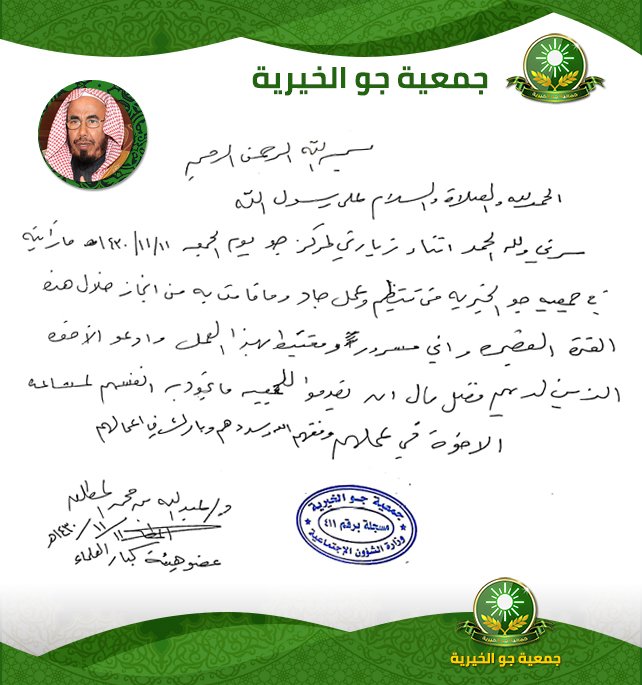 جمعية جو الخيرية
بسم الله الرحمن الرحيم
الحمد لله والصلاة والسلام على رسول الله
سرني ولله الحمد اثناء زيارتي لمركز جو يوم الجمعه ١٤٣٠/١١/١١هـ ما رأيته
في جمعيه جو الخيريه من تنظيم وعمل جاد وما قامت به من انجاز خلال هذه
الفترة القصيره واني مسرور ومغتبط بهذا العمل وادعو الأخوه
الذين لديهم فضل مال ان يقدموا للجمعيه ما تجود به انفسهم لمساعدة
الاخوة في عملهم وفقهم الله وسددهم وبارك في اعمالهم
د/عبدالله بن محمد المطلق
١٤٣٠/١١/١١هـ
عضو هيئة كبار العلماء
جمعية جو الخيرية
مسجلة برقم ٤١١
وزارة الشؤون الإجتماعية
جمعية جو الخيرية